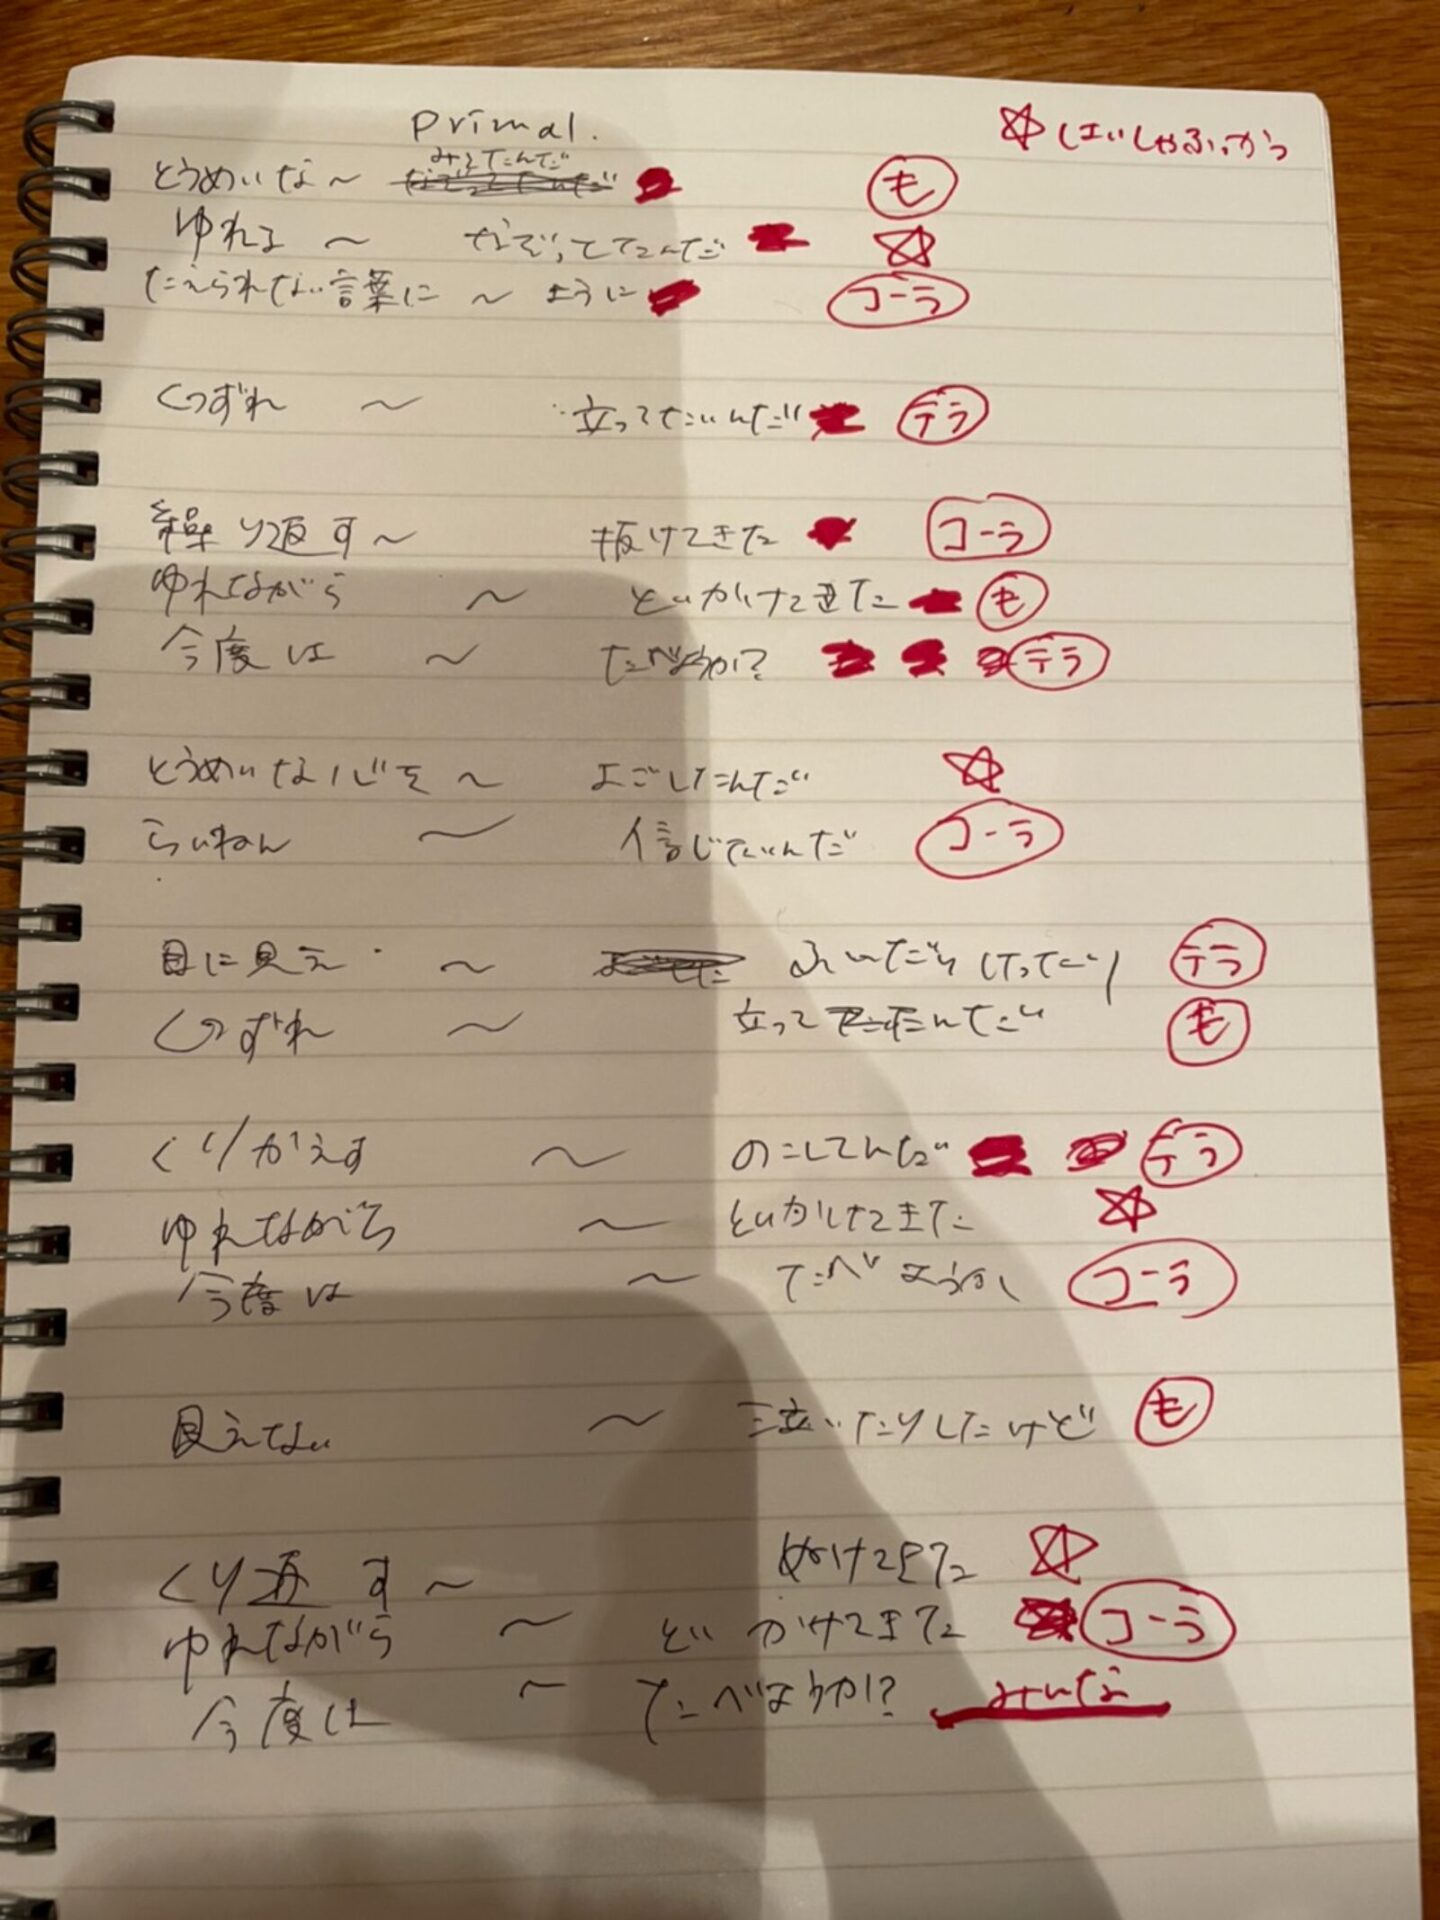 primal.
☆はいしゃふっかつ
みてたんだ
とうめいな〜 も
ゆれる 〜 なぞってたんだ ☆
たえられない言葉に 〜 ように コーラ
くつずれ 〜 立ってたいんだ テラ
繰り返す〜 抜けてきた コーラ
ゆれながら 〜 といかけてきた も
今度は 〜 たべようか? テラ
とうめいな心を 〜 よごしたんだ ☆
らいねん 〜 信じていんだ コーラ
目に見え 〜 ふいだり けったり テラ
くつずれ 〜 立って たんだ も
くりかえす 〜 のこしてんだ テラ
ゆれながら 〜 といかけてきた ☆
今度は 〜 たべようか コーラ
見えない 〜 泣いたりしたけど も
くり返す〜 ぬけてきた ☆
ゆれながら 〜 といかけてきた コーラ
今度は 〜 たべようか!? みんな